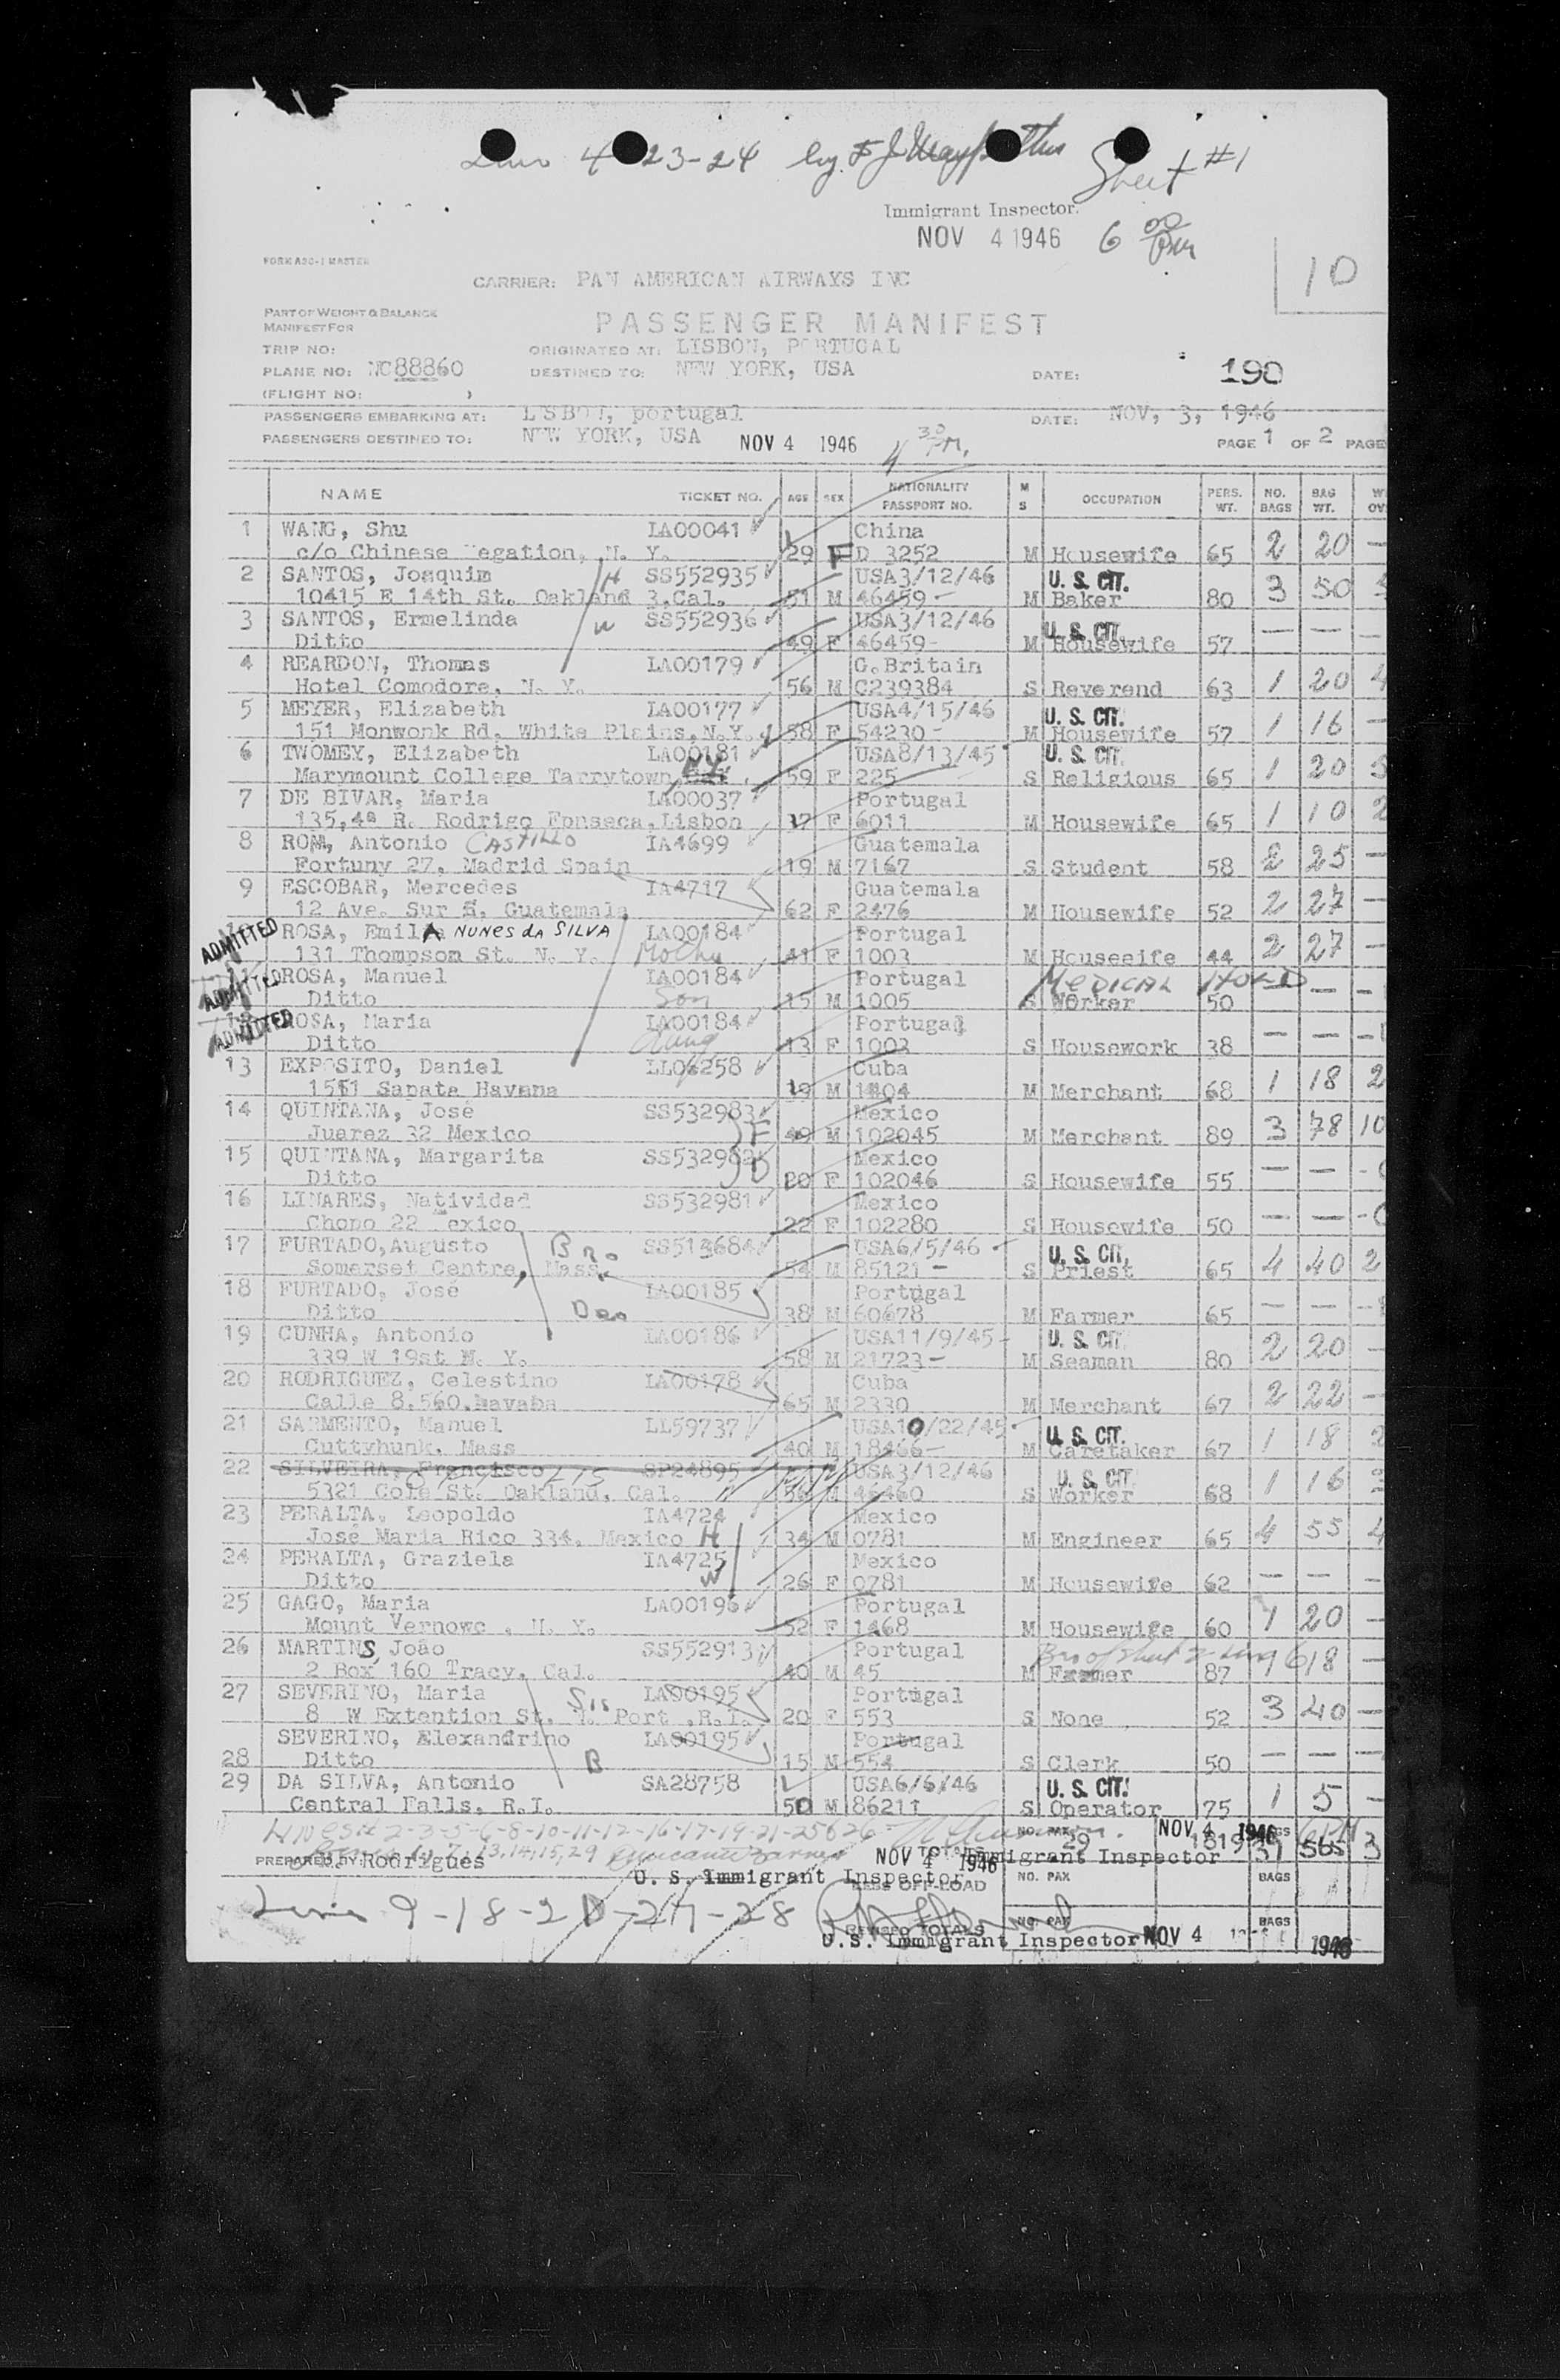 4 23-24 by F J
Sheet #1
Immigrant Inspector.
NOV 4 1946 6 00 Pm
10
CARRIER: PAN AMERICAN AIRWAYS INC
PART OF WEIGHT & BALANCE
MANIFEST FOR
PASSENGER MANIFEST
TRIP NO: ORIGINATED AT: LISBON, PORTUGAL
PLANE NO: NC88860 DESTINED TO: NEW YORK, USA DATE: 190
(FLIGHT NO: )
PASSENGERS EMBARKING AT: LISBON, portugal DATE: NOV, 3, 1946
PASSENGERS DESTINED TO: NEW YORK, USA NOV 4 1946 4 30 PM. PAGE 1 OF 2 PAGE
NAME TICKET NO. AGE SEX NATIONALITY PASSPORT NO. M S OCCUPATION PERS. WT. NO. BAGS BAG WT. W OV
1 WANG, Shu LA00041 China
c/o Chinese Legation, N. Y. 29 F D 3252 M Housewife 65 2 20 —
2 SANTOS, Joaquim H SS552935 USA3/12/46 U. S. CIT.
10415 E 14th St. Oakland 3.Cal. 51 M 46459 - M Baker 80 3 50
3 SANTOS, Ermelinda W SS552936 USA3/12/46 U. S. CIT.
Ditto 49 F 46459- M Housewife 57 — — —
4 REARDON, Thomas LA00179 G.Britain
Hotel Comodore, N. Y. 56 M C239384 S Reverend 63 1 20 4
5 MEYER, Elizabeth LA00177 USA4/15/46 U. S. CIT.
151 Monwonk Rd. White Plains,N.Y. 58 F 54230 - M Housewife 57 1 16 —
6 TWOMEY, Elizabeth LA00181 USA8/13/45 U. S. CIT.
Marymount College Tarrytown, N.Y. 59 F 225 S Religious 65 1 20 3
7 DE BIVAR, Maria LA00037 Portugal
135,4ª R. Rodrigo Fonseca,Lisbon 37 F 6011 M Housewife 65 1 10 2
8 ROM, Antonio CASTILLO IA4699 Guatemala
Fortuny 27, Madrid Spain 19 M 7167 S Student 58 2 25 —
9 ESCOBAR, Mercedes IA4717 Guatemala
12 Ave. Sur 5, Guatemala 62 F 2476 M Housewife 52 2 27 —
ADMITTED ROSA, EmiliA NUNES dA SILVA LA00184 Portugal
131 Thompsom St. N. Y. Mother 41 F 1003 M Houseeife 44 2 27 —
ADMITTED 11 ROSA, Manuel LA00184 Portugal MEDICAL HOLD
Ditto Son 15 M 1005 S Worker 50 — — —
ADMITTED ROSA, Maria LA00184 Portugal
Ditto Daug 13 F 1003 S Housework 38 — — —
13 EXPOSITO, Daniel LL06258 Cuba
1551 Sapata Havana 19 M 1404 M Merchant 68 1 18 2
14 QUINTANA, José SS532983 F Mexico
Juarez 32 Mexico 49 M 102045 M Merchant 89 3 78 10
15 QUINTANA, Margarita SS532982 D Mexico
Ditto 20 F 102046 S Housewife 55 — — -
16 LINARES, Natividad SS532981 Mexico
Chopo 22 Mexico 22 F 102280 S Housewife 50 — — -
17 FURTADO,Augusto Bro SS513684 USA6/5/46 U. S. CIT.
Somerset Centre, Mass. 54 M 85121 - S Priest 65 4 40 2
18 FURTADO, José LA00185 Portugal
Ditto Bro 38 M 60678 M Farmer 65 — — —
19 CUNHA, Antonio LA00186 USA11/9/45- U. S. CIT.
339 W 19st N. Y. 58 M 21723- M Seaman 80 2 20 —
20 RODRIGUEZ, Celestino LA00178 Cuba
Calle 8.560.havaba 65 M 2330 M Merchant 67 2 22 —
21 SARMENTO, Manuel LL59737 USA10/22/45 U. S. CIT.
Cuttyhunk, Mass 40 M 18466- M Caretaker 67 1 18 2
22 SILVEIRA, Francisco SP24895 USA3/12/46 U. S. CIT
5321 Cole St. Oakland, Cal. 56 M 46460 S Worker 68 1 16
23 PERALTA, Leopoldo IA4724 Mexico
José Maria Rico 334, Mexico H 34 M 0781 M Engineer 65 4 55 4
24 PERALTA, Graziela IA4725 Mexico
Ditto W 26 F 0781 M Housewife 62 — — —
25 GAGO, Maria LA00196 Portugal
Mount Vernowc , N. Y. 52 F 1468 M Housewife 60 1 20 —
26 MARTINS, João SS552913 Portugal
2 Box 160 Tracy, Cal. 40 M 45 M Farmer 87 1 18 —
27 SEVERINO, Maria Sis LA00195 Portugal
8 W Extention St. N. Port ,R.I. 20 F 553 S None 52 3 40 —
SEVERINO, Alexandrino LA00195 Portugal
28 Ditto B 15 M 554 S Clerk 50 — — —
29 DA SILVA, Antonio SA28758 USA6/6/46 U. S. CIT.
Central Falls, R.I. 50 M 86211 S Operator 75 1 5 —
Lines# 2-3-5-6-8-10-11-12-16-17-19-21-25&26
NO. PAX 29 NOV 4 1946 1819 37 565 3
7, 13, 14, 15, 29
PREPARED BY: Rodrigues NOV 4 1946 Immigrant Inspector
U. S. Immigrant Inspector
LESS OFF-LOAD NO. PAX BAGS
Lines 9-18-20-27-28
REVISED TOTALS NO. PAX BAGS
U.S. Immigrant Inspector NOV 4 1946